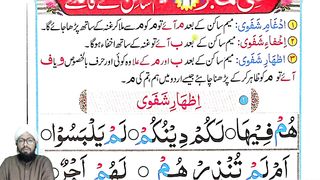 ۱ اِدْغامِ شَفَوِی: میم ساکن کے بعد م آئے تو م کو م میں ملا کر غنہ کے ساتھ پڑھا جائے گا۔
۲ اِخفاءِ شَفَوِی: میم ساکن کے بعد ب آئے تو غنہ کے ساتھ اخفاء ہوگا۔
۳ اِظہارِ شَفَوِی: میم ساکن کے بعد ب اور م کے علاوہ کوئی اور حرف بالخصوص و یا ف
آئے تو م کو ظاہر کر کے پڑھنا چاہئے جیسے اردو میں ہم تم کی م
۱ اِظہارِ شَفَوِی
هُمْ فِيْهَا لَكُمْ دِيْنُكُمْ لَمْ يَلْبَسُوْا
اَمْ لَمْ تُنْذِرْ هُمْ لَهُمْ اَجْرٌ